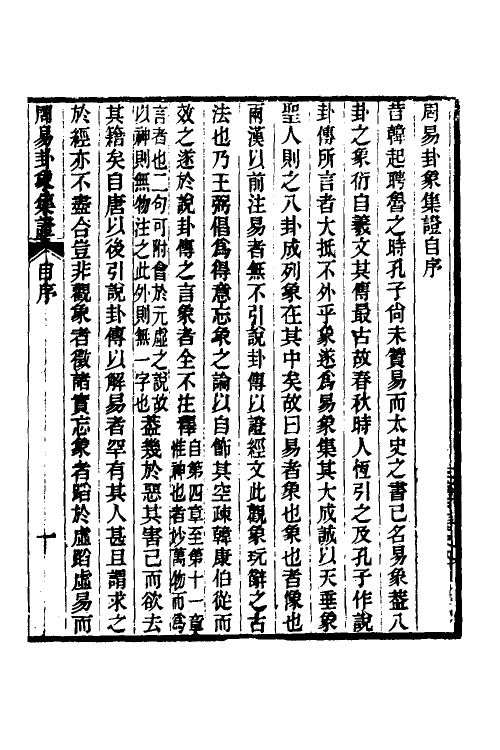 周易卦象集證自序
昔韓起聘魯之時孔子尙未贊易而太史之書已名易象葢八
卦之象衍自羲文其傳最古故春秋時人恆引之及孔子作說
卦傳所言者大抵不外乎象遂爲易象集其大成誠以天垂象
聖人則之八卦成列象在其中矣故曰易者象也象也者像也
兩漢以前注易者無不引說卦傳以證經文此觀象玩辭之古
法也乃王弼倡爲得意忘象之論以自飾其空疎韓康伯從而
效之遂於說卦傳之言象者全不注釋自第四章至第十一章惟神也者妙萬物而爲
言者也二句可附會於元虛之說故以神則無物注之此外則無一字也葢幾於惡其害己而欲去
其籍矣自唐以後引說卦傳以解易者罕有其人甚且謂求之
於經亦不盡合豈非觀象者徵諸實忘象者蹈於虛蹈虛易而
周易卦象集證
自序
一